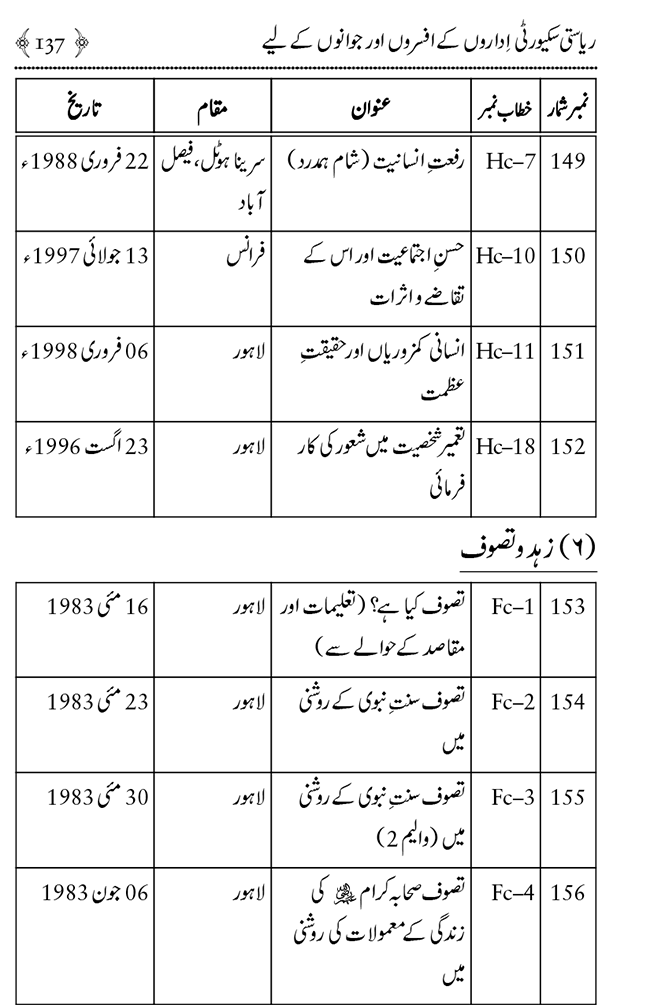 ریاستی سکیورٹی اِداروں کے افسروں اور جوانوں کے لیے ﴿ 137 ﴾
نمبر شمار خطاب نمبر عنوان مقام تاریخ
149 Hc–7 رفعتِ انسانیت (شام ہمدرد) سرینا ہوٹل، فیصل 22 فروری 1988ء
آباد
150 Hc–10 حسنِ اجتماعیت اور اس کے فرانس 13 جولائی 1997ء
تقاضے و اثرات
151 Hc–11 انسانی کمزوریاں اور حقیقتِ لاہور 06 فروری 1998ء
عظمت
152 Hc–18 تعمیرِ شخصیت میں شعور کی کار لاہور 23 اگست 1996ء
فرمائی
(٦) زہد و تصوف
153 Fc–1 تصوف کیا ہے؟ (تعلیمات اور لاہور 16 مئی 1983
مقاصد کے حوالے سے)
154 Fc–2 تصوف سنتِ نبوی کے روشنی لاہور 23 مئی 1983
میں
155 Fc–3 تصوف سنتِ نبوی کے روشنی لاہور 30 مئی 1983
میں (والیم 2)
156 Fc–4 تصوف صحابہ کرام کی لاہور 06 جون 1983
زندگی کے معمولات کی روشنی
میں